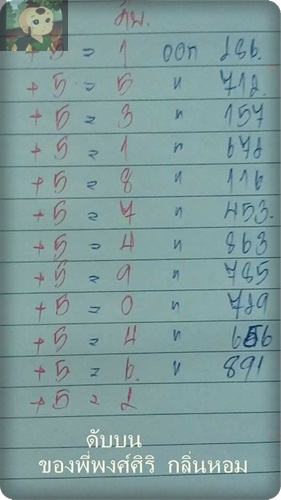 ดับ.
+ 5 = 1 ออก 286.
+ 5 = 5 " 712.
+ 5 = 3 " 157
+ 5 = 1 " 672
+ 5 = 8 " 116
+ 5 = 7 " 453.
+ 5 = 4 " 863
+ 5 = 9 " 785
+ 5 = 0 " 729
+ 5 = 4 " 656
+ 5 = 6. " 891
+ 5 = 2
ดับบน
ของพี่พงศ์ศิริ กลิ่นหอม